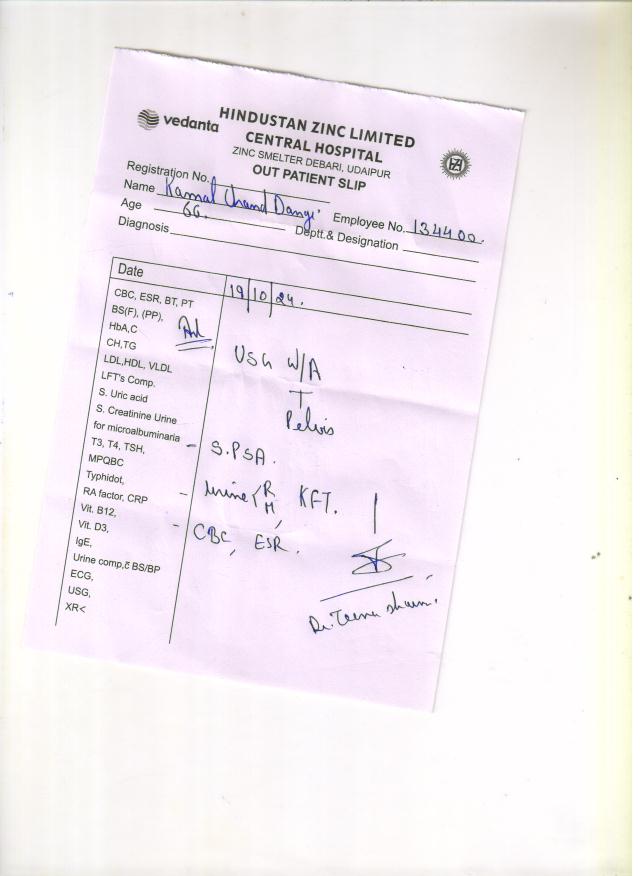 vedanta
HINDUSTAN ZINC LIMITED
CENTRAL HOSPITAL
ZINC SMELTER DEBARI, UDAIPUR
OUT PATIENT SLIP
Registration No.
Name Kamal Chand Dangi Employee No. 134400.
Age 66. Deptt.& Designation
Diagnosis
Date 19/10/24.
CBC, ESR, BT, PT
BS(F), (PP),
HbA,C
CH,TG
USG W/A
LDL,HDL, VLDL
LFT's Comp.
Pelvis
S. Uric acid
S. Creatinine Urine
for microalbuminaria
- S.PSA.
T3, T4, TSH,
MPQBC
Typhidot,
- Urine R/M, KFT.
RA factor, CRP
Vit. B12,
- CBC, ESR.
Vit. D3,
IgE,
Urine comp,c̄ BS/BP
ECG,
USG,
XR<
Dr.